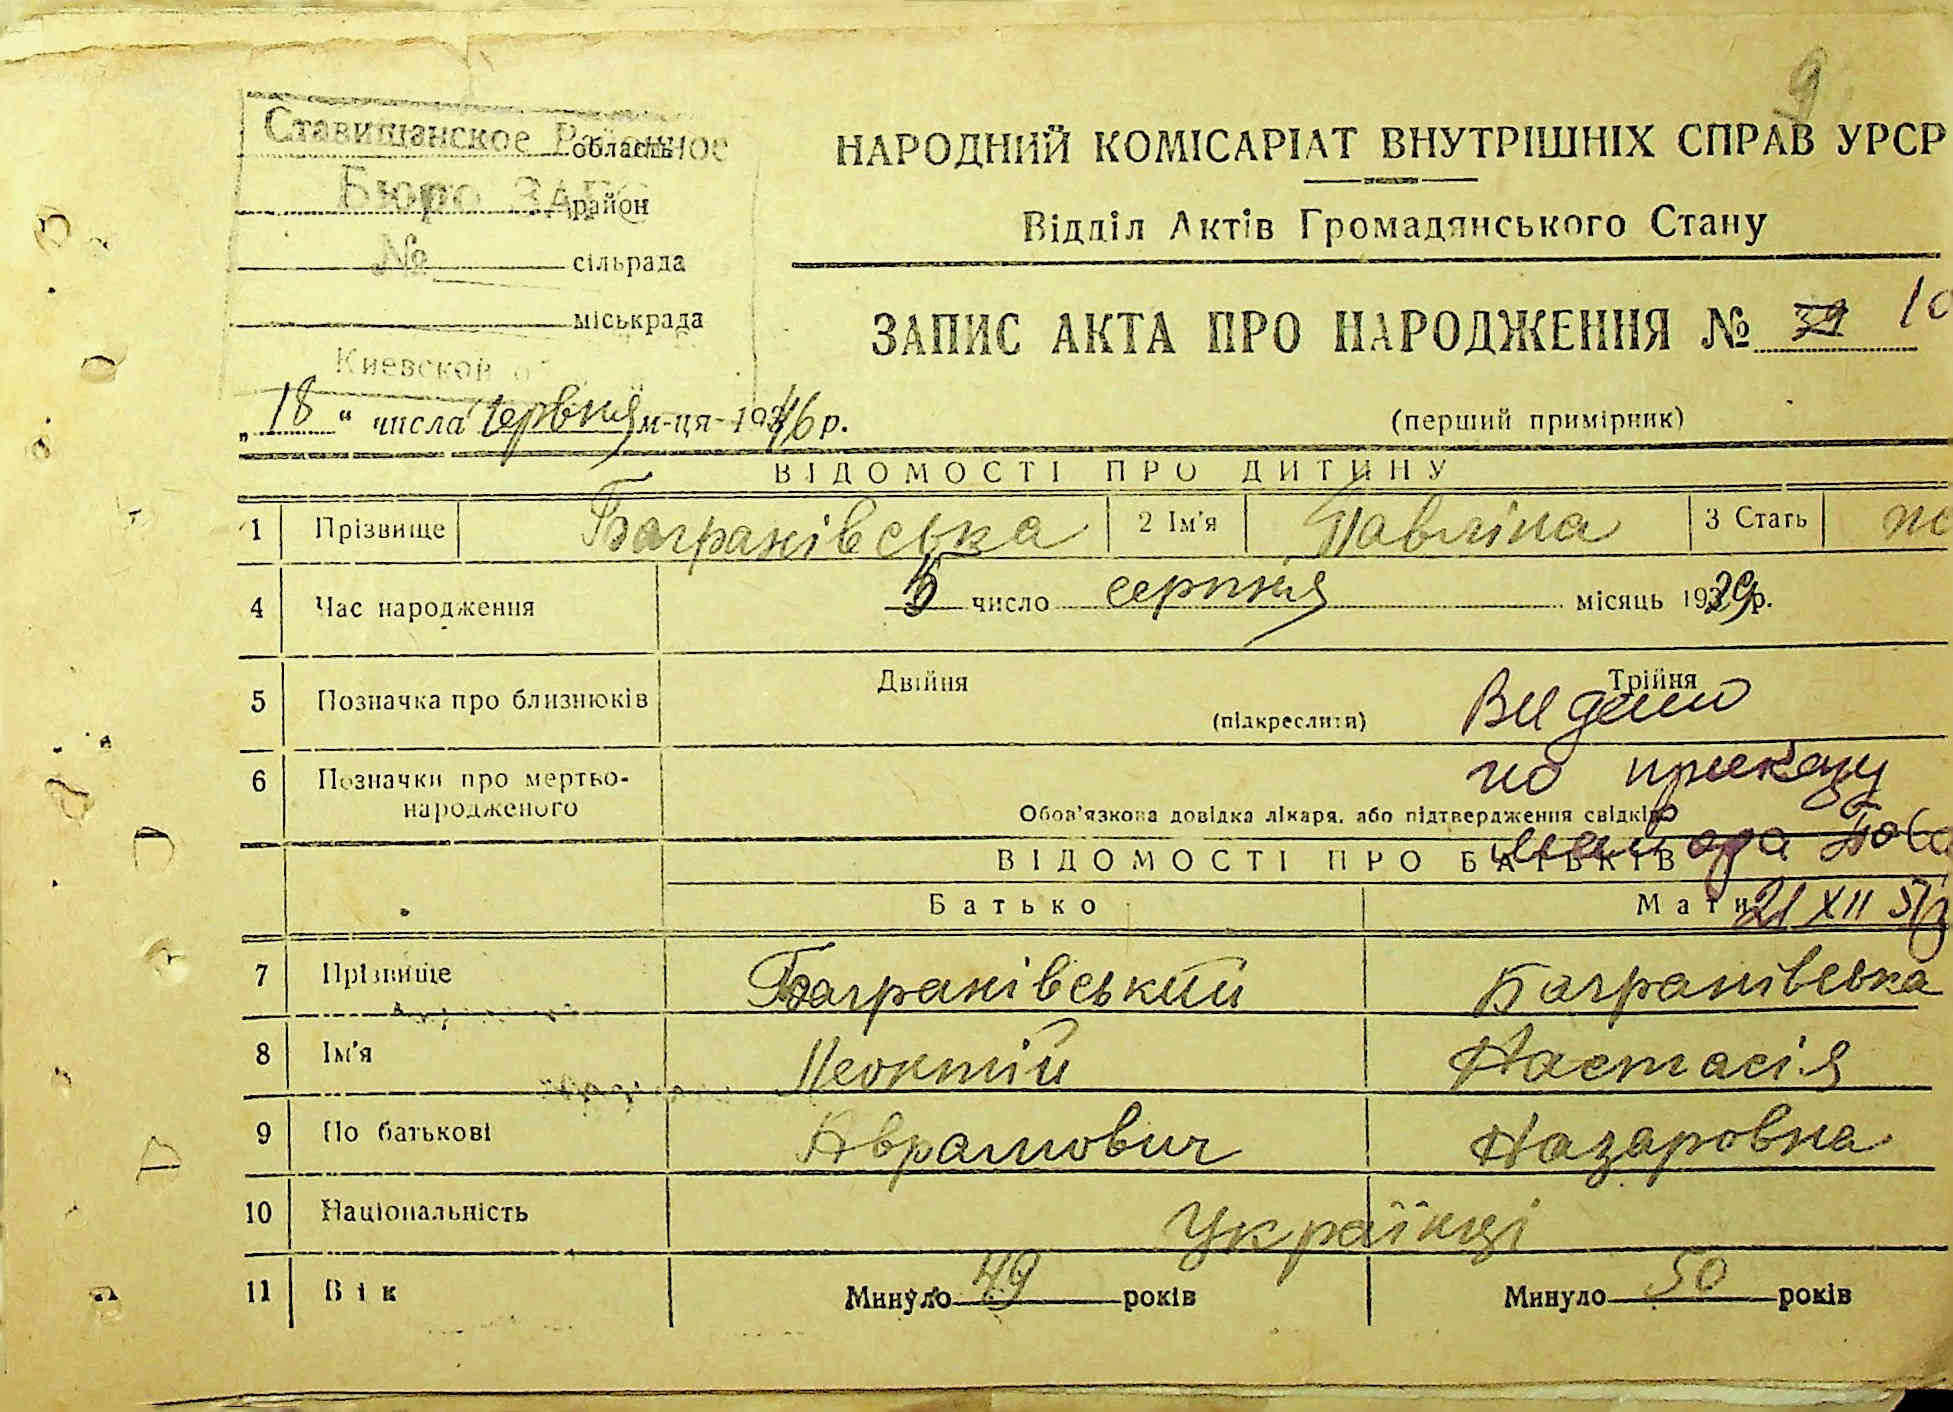 9
Ставищанское Районное
Бюро ЗАГС
№
Киевской
область
район
сільрада
міськрада
НАРОДНИЙ КОМІСАРІАТ ВНУТРІШНІХ СПРАВ УРСР
Відділ Актів Громадянського Стану
ЗАПИС АКТА ПРО НАРОДЖЕННЯ № 39 10
„18" числа червня м-ця 1946 р.
(перший примірник)
ВІДОМОСТІ ПРО ДИТИНУ
1 Прізвище Баграновська 2 Ім'я Павліна 3 Стать
4 Час народження 5 число серпня місяць 1929 р.
5 Позначка про близнюків Двійня (підкреслити) Трійня
Видано
6 Позначки про мертво-народженого
по приказу
Обов'язкова довідка лікаря, або підтвердження свідків
ВІДОМОСТІ ПРО БАТЬКІВ
Батько Мати
21 XII 51
7 Прізвище Багранівський Багранівська
8 Ім'я Неоктій Настасія
9 По батькові Аврамович Назаровна
10 Національність Українці
11 Вік Минуло 49 років Минуло 50 років